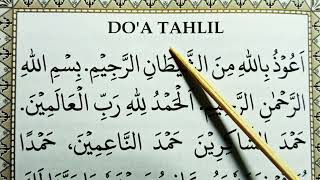 DO'A TAHLIL
اَعُوْذُ بِاللهِ مِنَ الشَّيْطَانِ الرَّجِيْمِ. بِسْمِ اللهِ
الرَّحْمٰنِ الرَّحِيْمِ. اَلْحَمْدُ لِلهِ رَبِّ الْعَالَمِيْنَ.
حَمْدَ الشَّاكِرِيْنَ حَمْدَ النَّاعِمِيْنَ، حَمْدًا